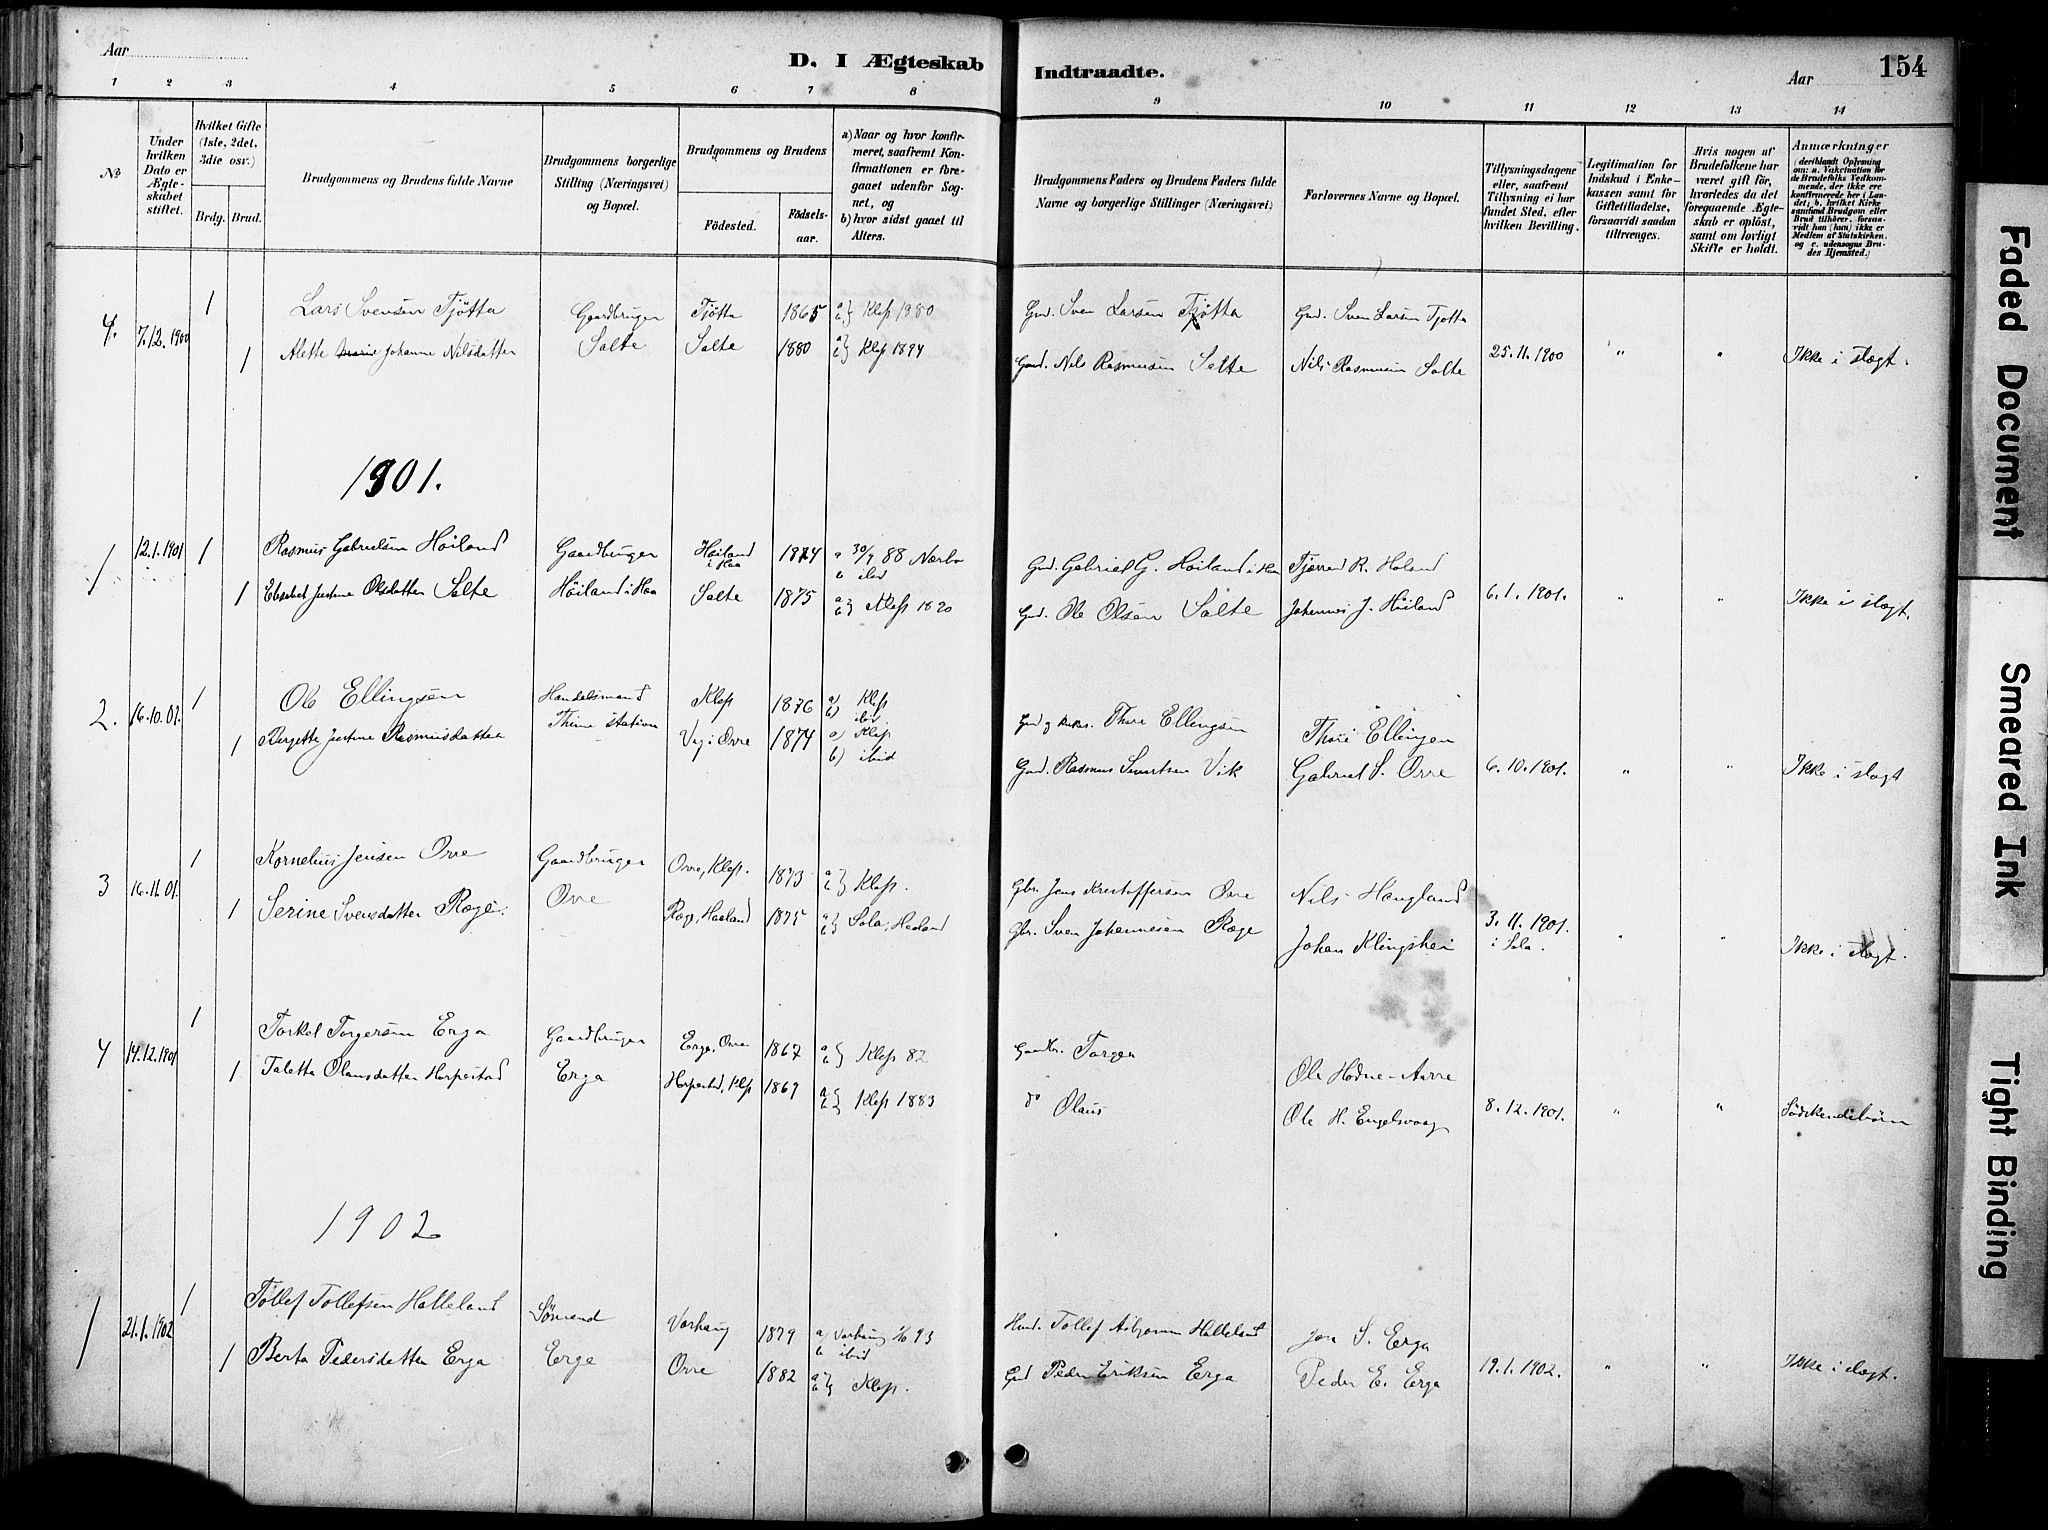 Aar
D. I Ægteskab
Indtraadte.
Aar
154
1 2 3 4 5 6 7 8 9 10 11 12 13 14
No
Under hvilken Dato er Ægteskabet stiftet.
Hvilket Gifte (1ste, 2det, 3die osv.)
Brdg. Brud.
Brudgommens og Brudens fulde Navne
Brudgommens borgerlige Stilling (Næringsvei) og Bopæl.
Brudgommens og Brudens
Födested.
Födselsaar.
a) Naar og hvor konfirmeret, saafremt Konfirmationen er foregaaet udenfor Sognet, og
b) hvor sidst gaaet til Alters.
Brudgommens Faders og Brudens Faders fulde Navne og borgerlige Stillinger (Næringsvei)
Forlovernes Navne og Bopæl.
Tillysningsdagene eller, saafremt Tillysning ei har fundet Sted, efter hvilken Bevilling.
Legitimation for Indskud i Enkekassen samt for Giftetilladelse, forsaavidt saadan tiltrænges.
Hvis nogen af Brudefolkene har været gift för, hvorledes da det foregaaende Ægteskab er oplöst, samt om lovligt Skifte er holdt.
Anmærkninger
(deriblandt Oplysning om: a. Vakcination for de Brudefolks Vedkommende, der ikke ere konfirmerede her i Landet; b. hvilket Kirkesamfund Brudgom eller Brud tilhörer, forsaavidt han (hun) ikke er Medlem af Statskirken, og c. udensogns Brudes Hjemsted.)
4. 7.12.1900 1 Lars Svensen Tjøtta Gaardbruger Tjøtta 1865 a b} Klep 1880 Gmd. Sven Larsen Tjøtta Gmd. Sven Larsen Tjotta
1 Alette Johanne Nilsdatter Salte Salte 1880 a b} Klep 1894 Gmd. Nils Rasmussen Salte Nils Rasmussen Salte 25.11.1900 " " Ikke i slægt.
1901.
1 12.1.1901 1 Rasmus Gabrielsen Höiland Gaardbruger Höiland i Haa 1874 a 88 Nærbø b ibid Gmd. Gabriel G. Höiland i Haa R. Høland
1 Elisabet Justine Olsdatter Salte Höiland i Haa Salte 1875 a b} Klep 1890 Gmd. Ole Olsen Salte Johannes J. Höiland 6.1.1901. " " Ikke i slægt.
2. 16.10.01. 1 Ole Ellingsen Handelsmand Klep 1876 a) Klep b) ibid Gmd og Thore Ellingsen Thore Ellingsen
1 Bergette Justine Rasmusdatter Thime station Vig i Orre 1874 a) Klep b) ibid Gmd. Rasmus Sivertsen Vik Gabriel S. Orre 6.10.1901. " " Ikke i slægt
3 16.11.01. 1 Kornelius Jensen Orre Gaardbruger Orre, Klep. 1873 a b} Klep. Gbr. Jens Kristoffersen Orre Nils Haugland
1 Serine Svensdatter Ræge. Orre Ræge, Haaland 1875 a b} Sola, Haaland Gbr. Sven Johannesen Ræge Johan Klingshei 3.11.1901. i Sola. " " Ikke i slægt.
4 14.12.1901 1 Torkel Torgersen Erga Gaardbruger Erga, Orre 1867 a b} Klep 82 Gaardbr. Torger Ole Hodne-Aarre
1 Taletta Olausdatter Horpestad Erga Horpestad, Klep 1869 a b} Klep 1883 do Olaus Ole H. Engelsvaag 8.12.1901. " " Södskendebörn
1902
1 21.1.1902 1 Tollef Tollefsen Halleland Sömand Varhaug 1879 a) Varhaug 93 b ibid Tollef Halleland S. Erga
1 Berta Pedersdatter Erga Erga Orre 1882 a b} Klep. Gmd Peder Eriksen Erga Peder E. Erga 19.1.1902. " " Ikke i slægt.
Faded Document
Smeared Ink
Tight Binding